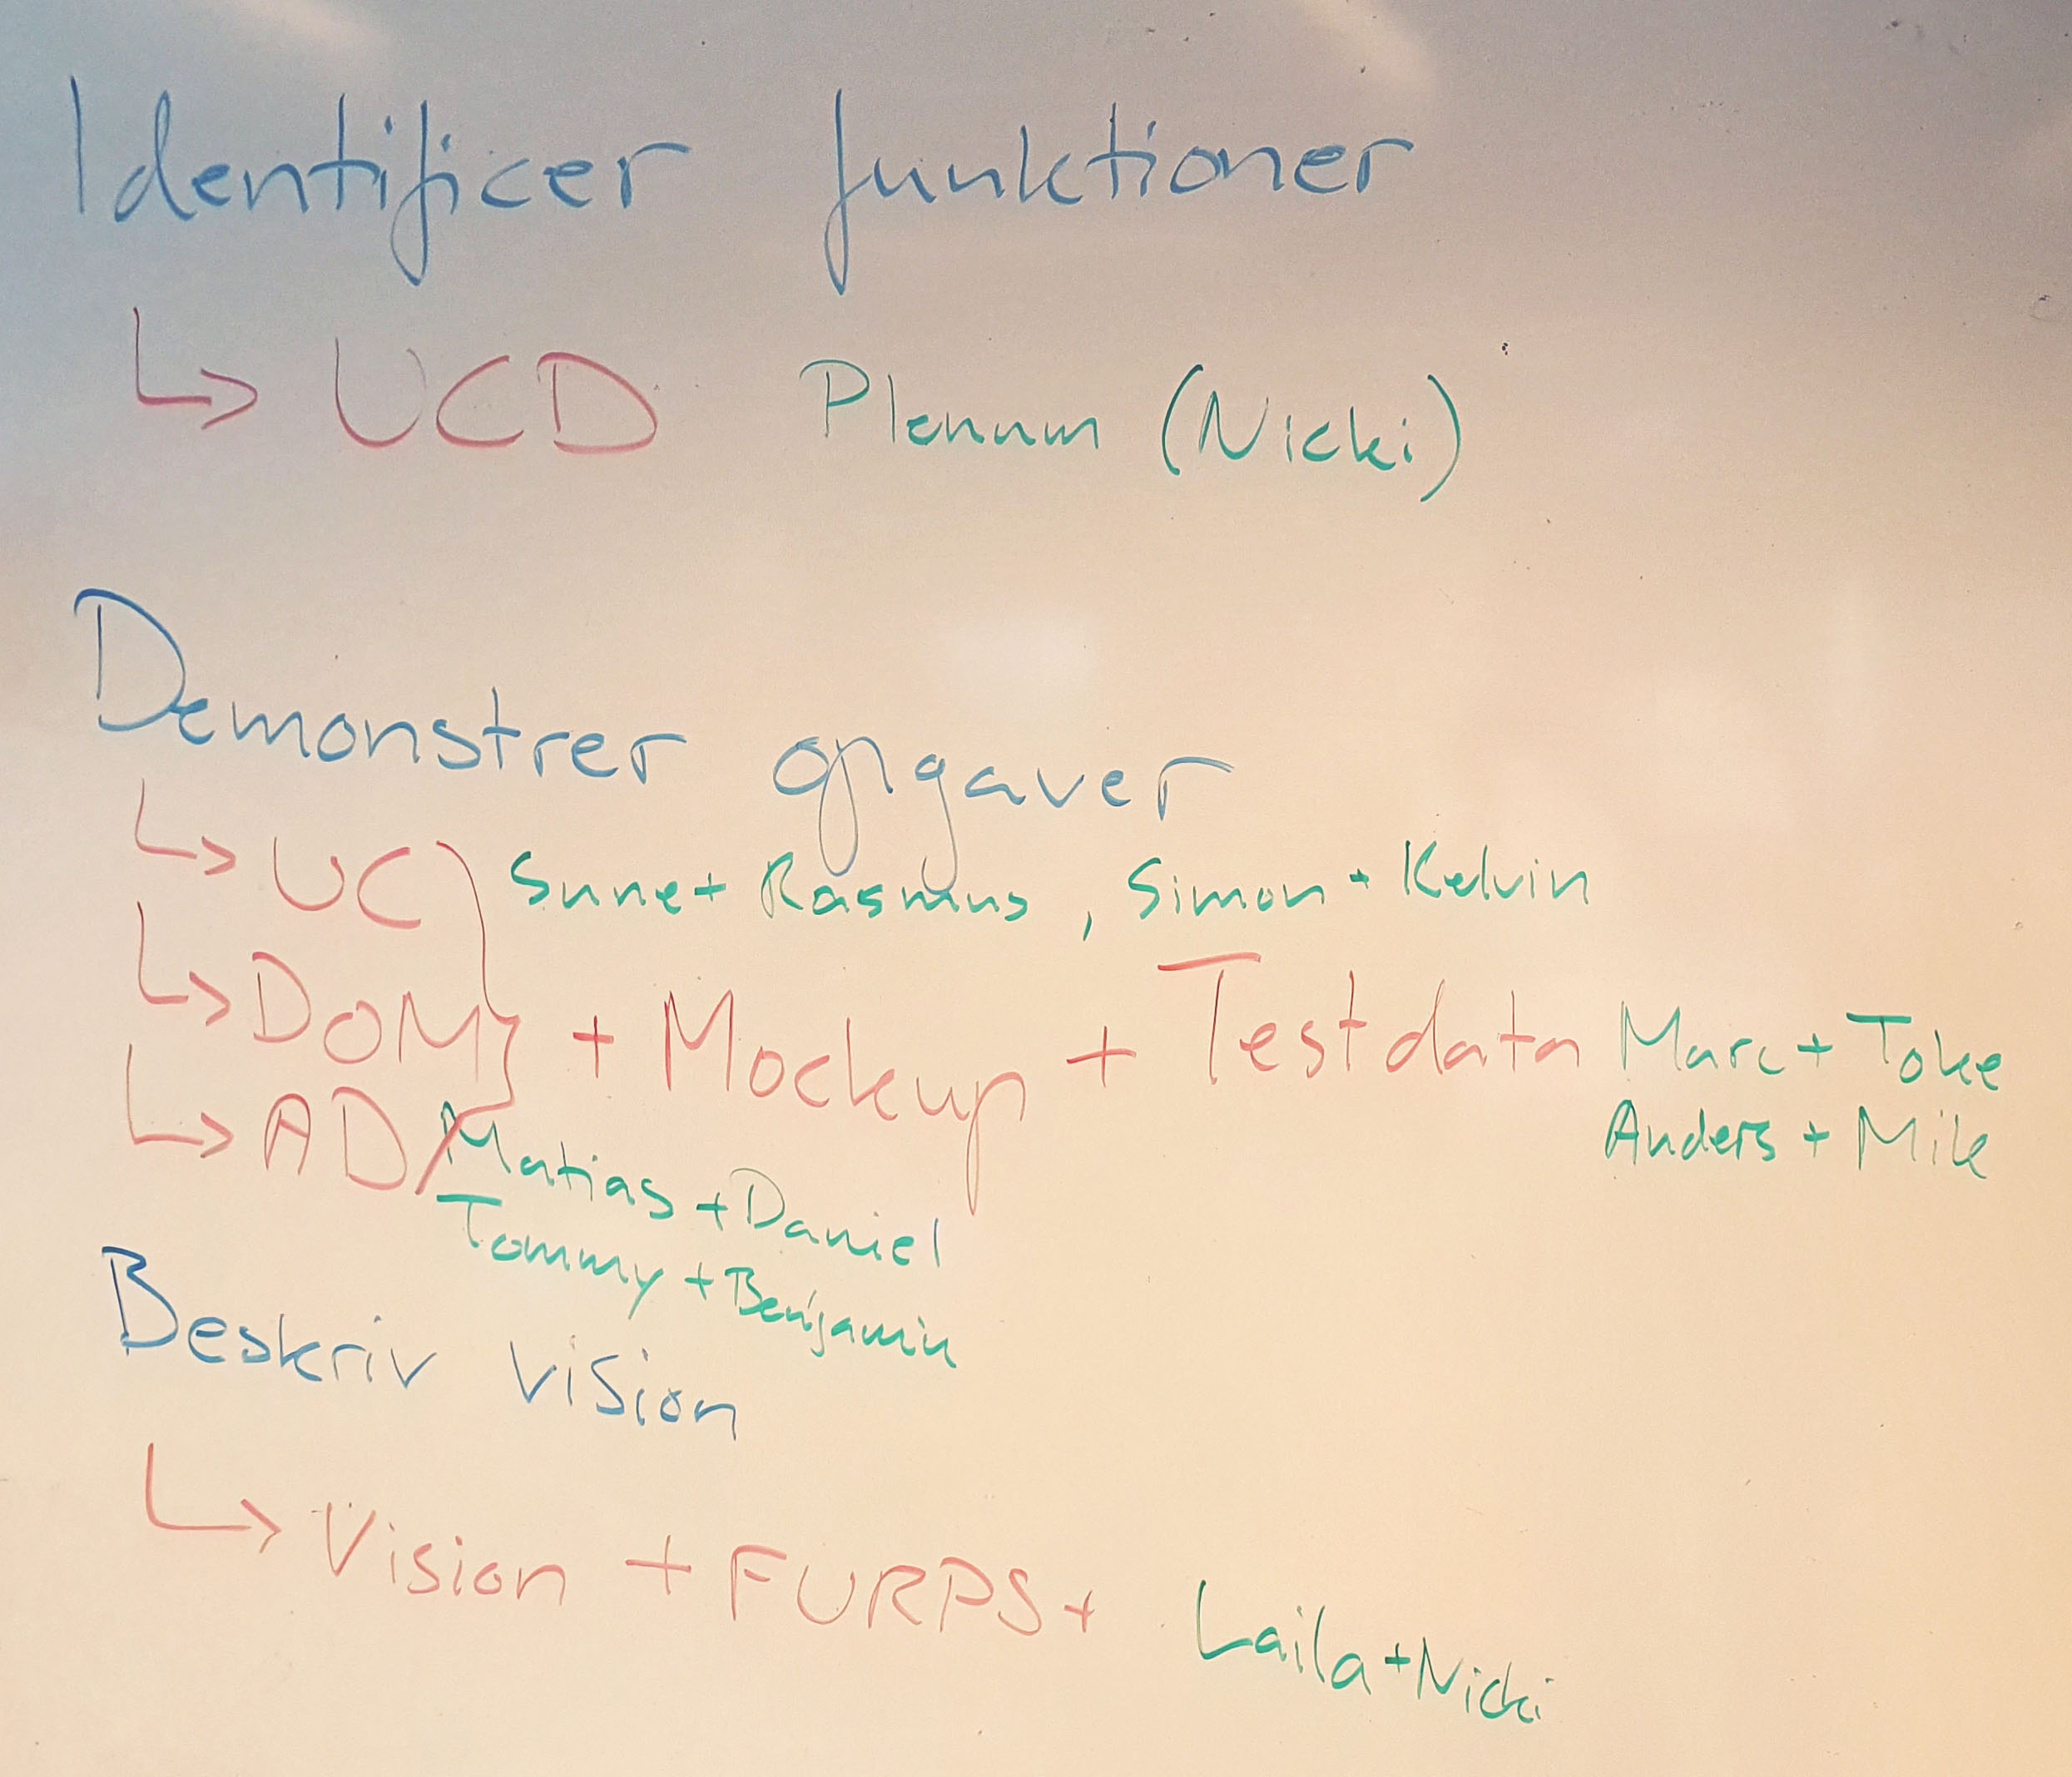 Identificer funktioner
↳ UCD Plenum (Nicki)
Demonstrer opgaver
↳ UC Sune + Rasmus, Simon + Kelvin
↳ DOM } + Mockup + Testdata Marc + Toke
Anders + Mik
↳ AD / Matias + Daniel
Tommy + Benjamin
Beskriv vision
↳ Vision + FURPS+ Laila + Nicki